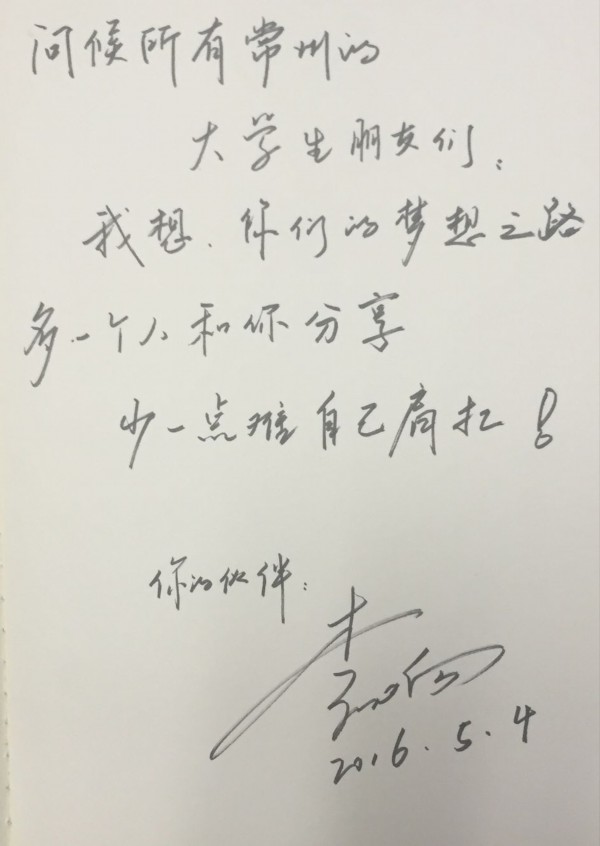 问候所有常州的
大学生朋友们：
我想、你们的梦想之路
多一个人和你分享
少一点难自己肩扛！
你的伙伴：
2016.5.4